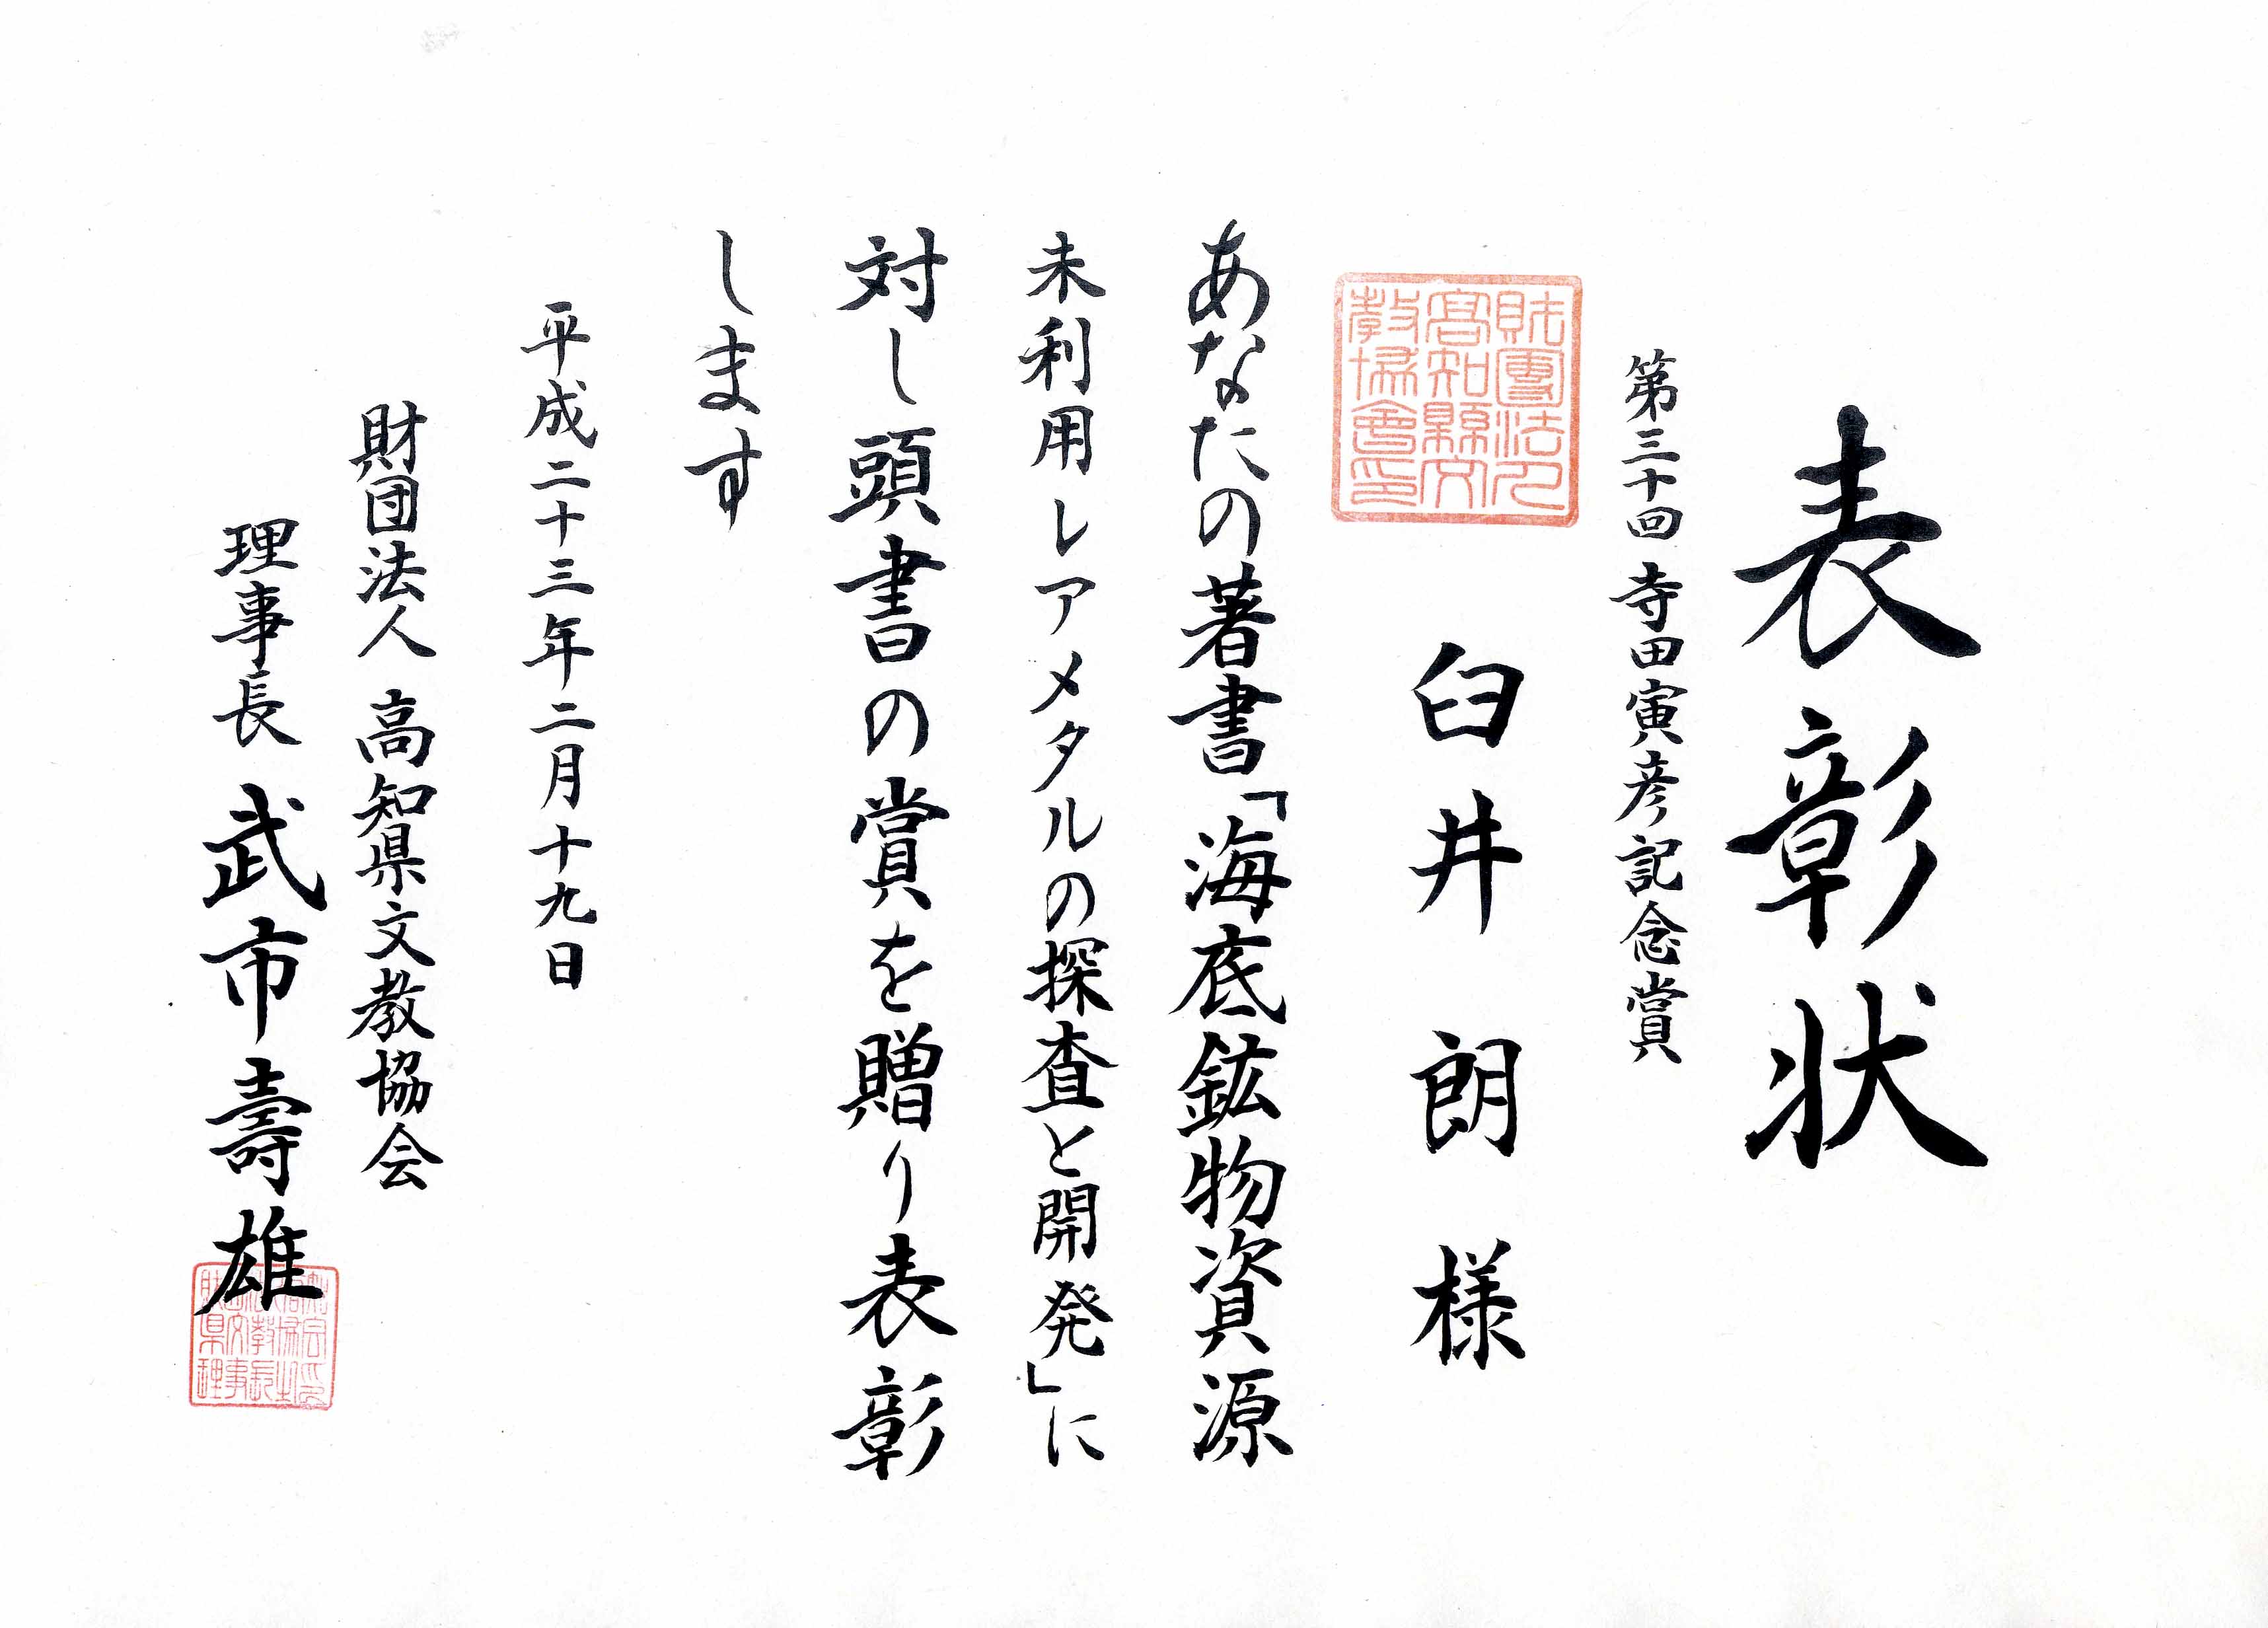 表彰状
第三十回 寺田寅彦記念賞
臼井 朗 様
財團法人
高知縣文
教協會印
あなたの著書「海底鉱物資源
未利用レアメタルの探査と開発」に
対し頭書の賞を贈り表彰
します
平成二十三年二月十九日
財団法人 高知県文教協会
理事長 武市壽雄